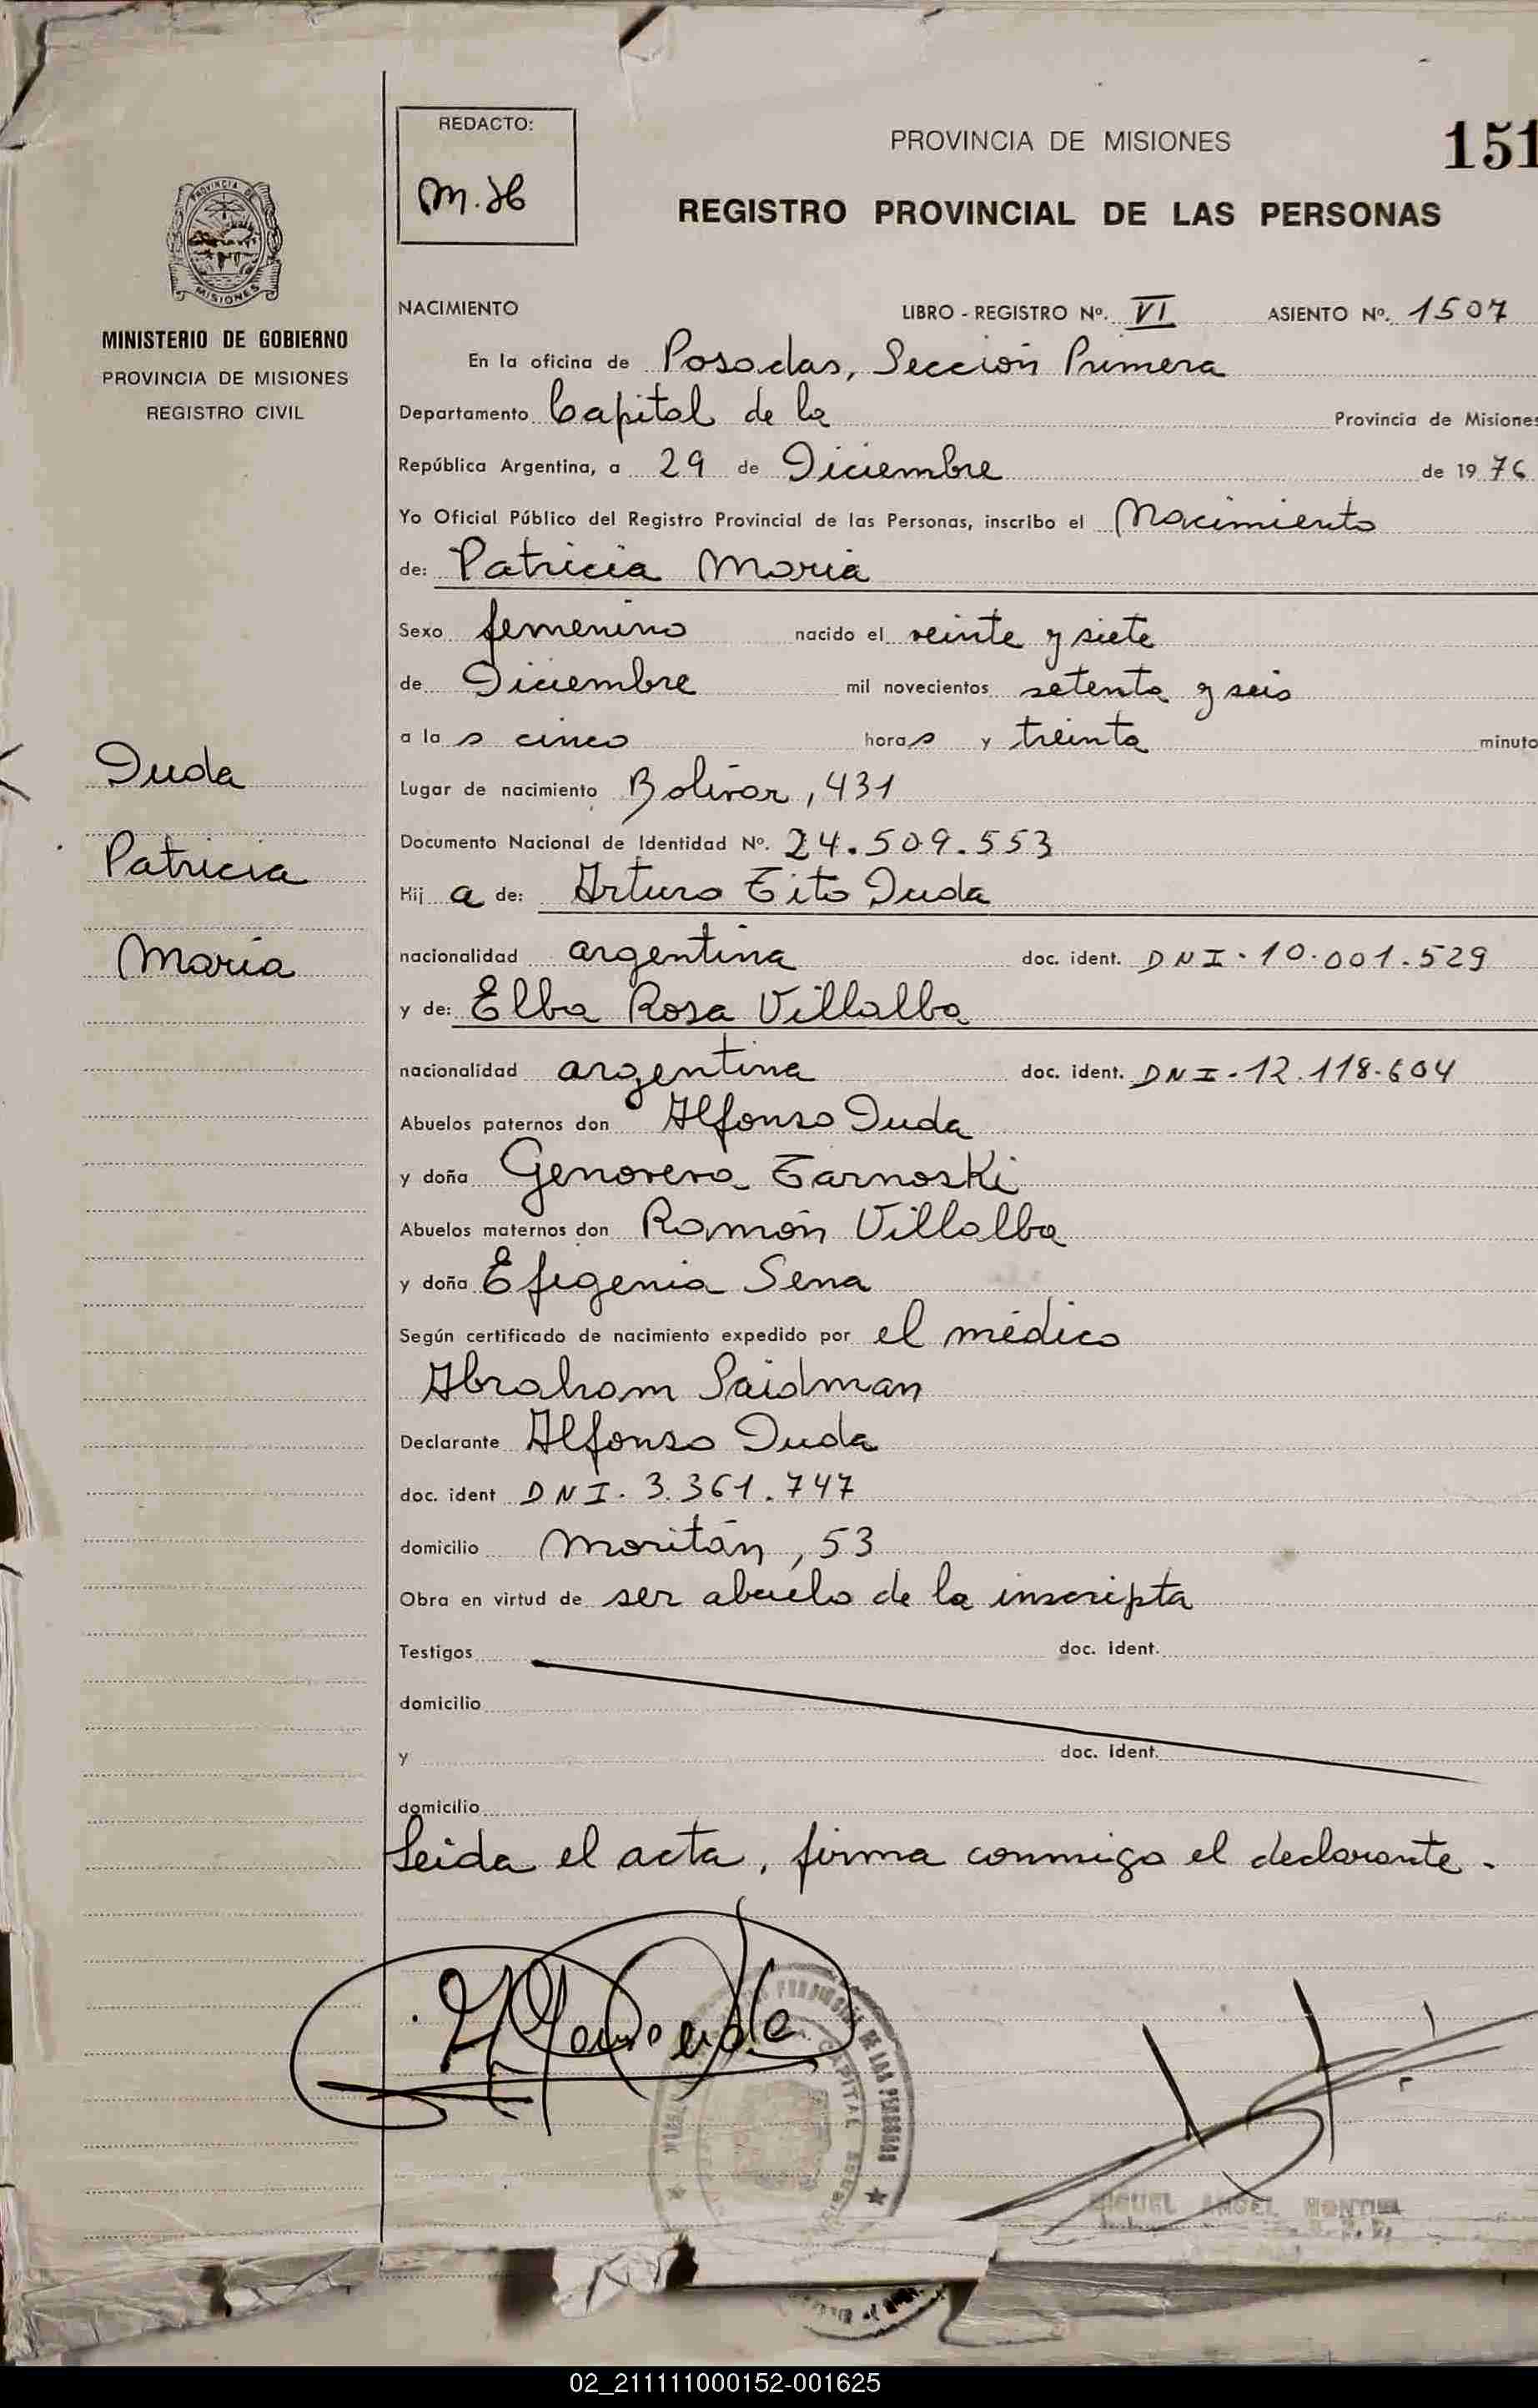 REDACTO:
M. H
PROVINCIA DE MISIONES
151
REGISTRO PROVINCIAL DE LAS PERSONAS
PROVINCIA DE
MISIONES
MINISTERIO DE GOBIERNO
PROVINCIA DE MISIONES
REGISTRO CIVIL
NACIMIENTO LIBRO - REGISTRO Nº. VI ASIENTO Nº. 1507
En la oficina de Posadas, Sección Primera
Departamento Capital de la Provincia de Misiones
República Argentina, a 29 de Diciembre de 1976
Yo Oficial Público del Registro Provincial de las Personas, inscribo el Nacimiento
de: Patricia María
Sexo femenino nacido el veinte y siete
de Diciembre mil novecientos setenta y seis
a las cinco horas y treinta minuto
Duda
Patricia
María
Lugar de nacimiento Bolívar, 431
Documento Nacional de Identidad Nº. 24.509.553
Hija de: Arturo Tito Duda
nacionalidad argentina doc. ident. DNI. 10.001.529
y de: Elba Rosa Villalba
nacionalidad argentina doc. ident. DNI-12.118.604
Abuelos paternos don Alfonso Duda
y doña Genoveva Tarnoski
Abuelos maternos don Ramón Villalba
y doña Efigenia Sena
Según certificado de nacimiento expedido por el médico
Abraham Saidman
Declarante Alfonso Duda
doc. ident DNI. 3.361.747
domicilio Moritán, 53
Obra en virtud de ser abuelo de la inscripta
Testigos doc. ident.
domicilio
y doc. ident.
domicilio
Leida el acta, firma conmigo el declarante.
MIGUEL ANGEL MONTIEL
02_211111000152-001625